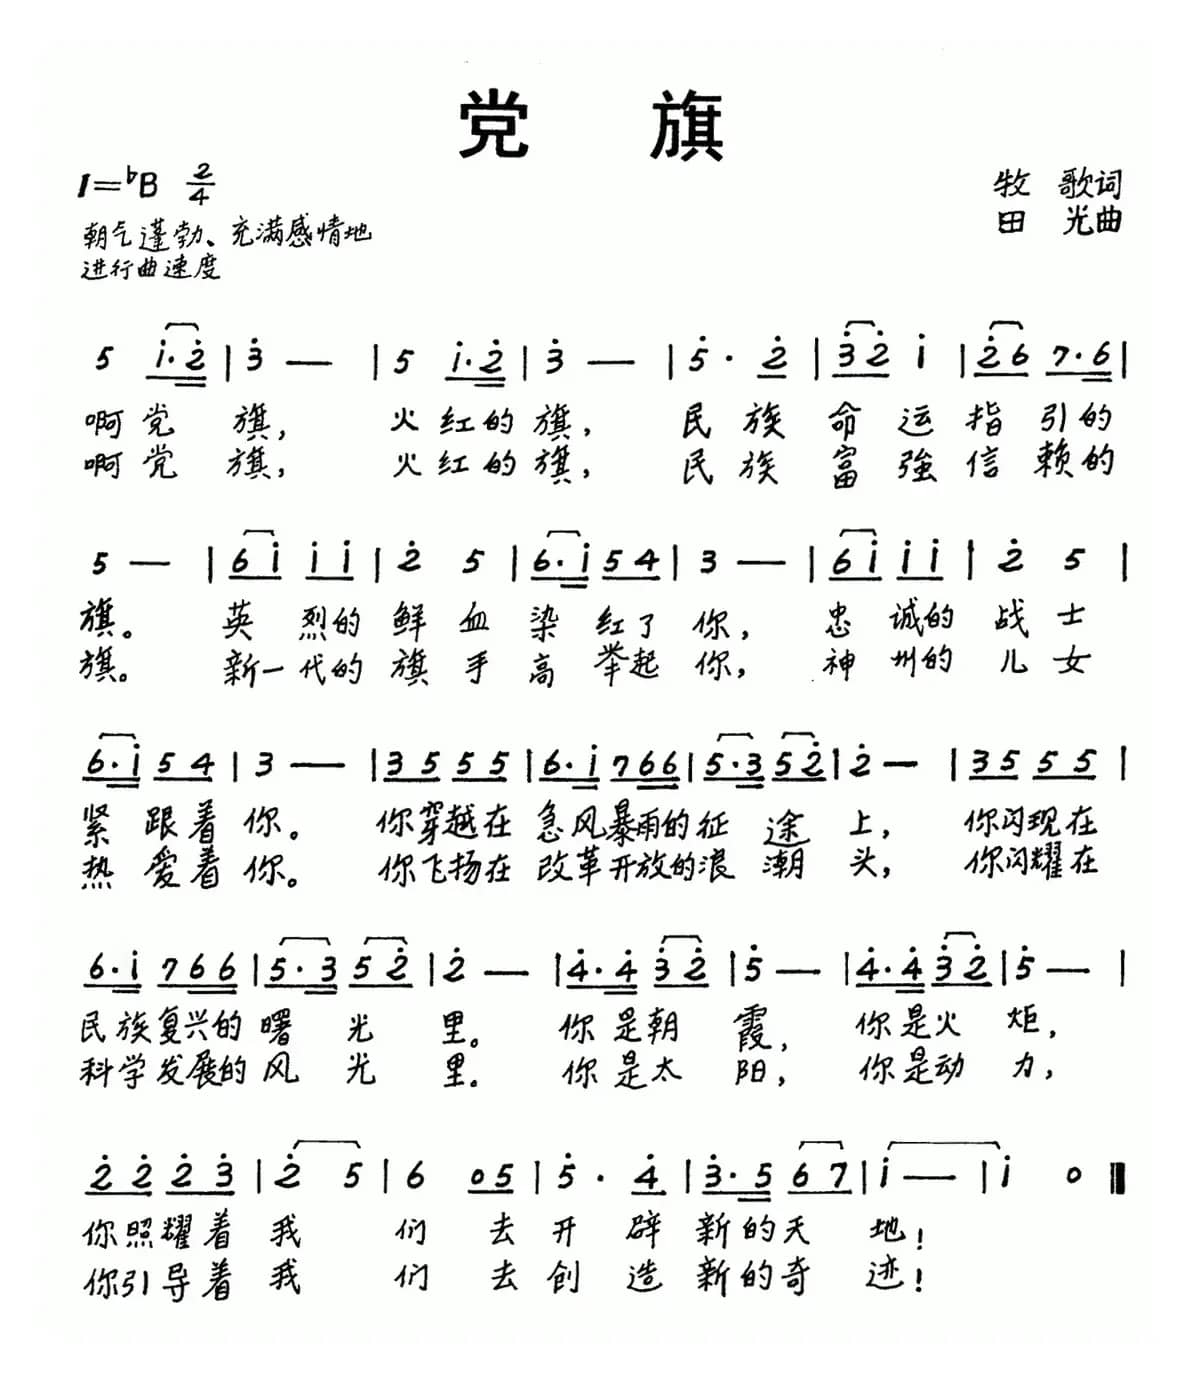 党 旗
1=♭B 2/4
牧 歌词
朝气蓬勃、充满感情地
田 光曲
进行曲速度
5 i·2̇ | 3̇ — | 5 i·2̇ | 3̇ — | 5̇· 2̇ | 3̇2̇ i | 2̇6 7·6 |
啊党 旗, 火红的旗, 民族命运指引的
啊党 旗, 火红的旗, 民族富強信赖的
5 — | 6i ii | 2̇ 5 | 6·i 54 | 3 — | 6i ii | 2̇ 5 |
旗。 英烈的鲜血染红了你, 忠诚的战士
旗。 新一代的旗手高举起你, 神州的儿女
6·i 54 | 3 — | 35 55 | 6·i 766 | 5·3 52̇ | 2̇ — | 35 55 |
紧跟着你。 你穿越在急风暴雨的征途上, 你闪现在
热爱着你。 你飞扬在改革开放的浪潮头, 你闪耀在
6·i 766 | 5·3 52̇ | 2̇ — | 4̇·4̇ 3̇2̇ | 5̇ — | 4̇·4̇ 3̇2̇ | 5̇ — |
民族复兴的曙光里。 你是朝霞, 你是火炬,
科学发展的风光里. 你是太阳, 你是动力,
2̇2̇ 2̇3̇ | 2̇ 5 | 6 05 | 5̇· 4̇ | 3̇·5 67 | i — | i 0 ‖
你照耀着我们去开辟新的天地!
你引导着我们去创造新的奇迹!